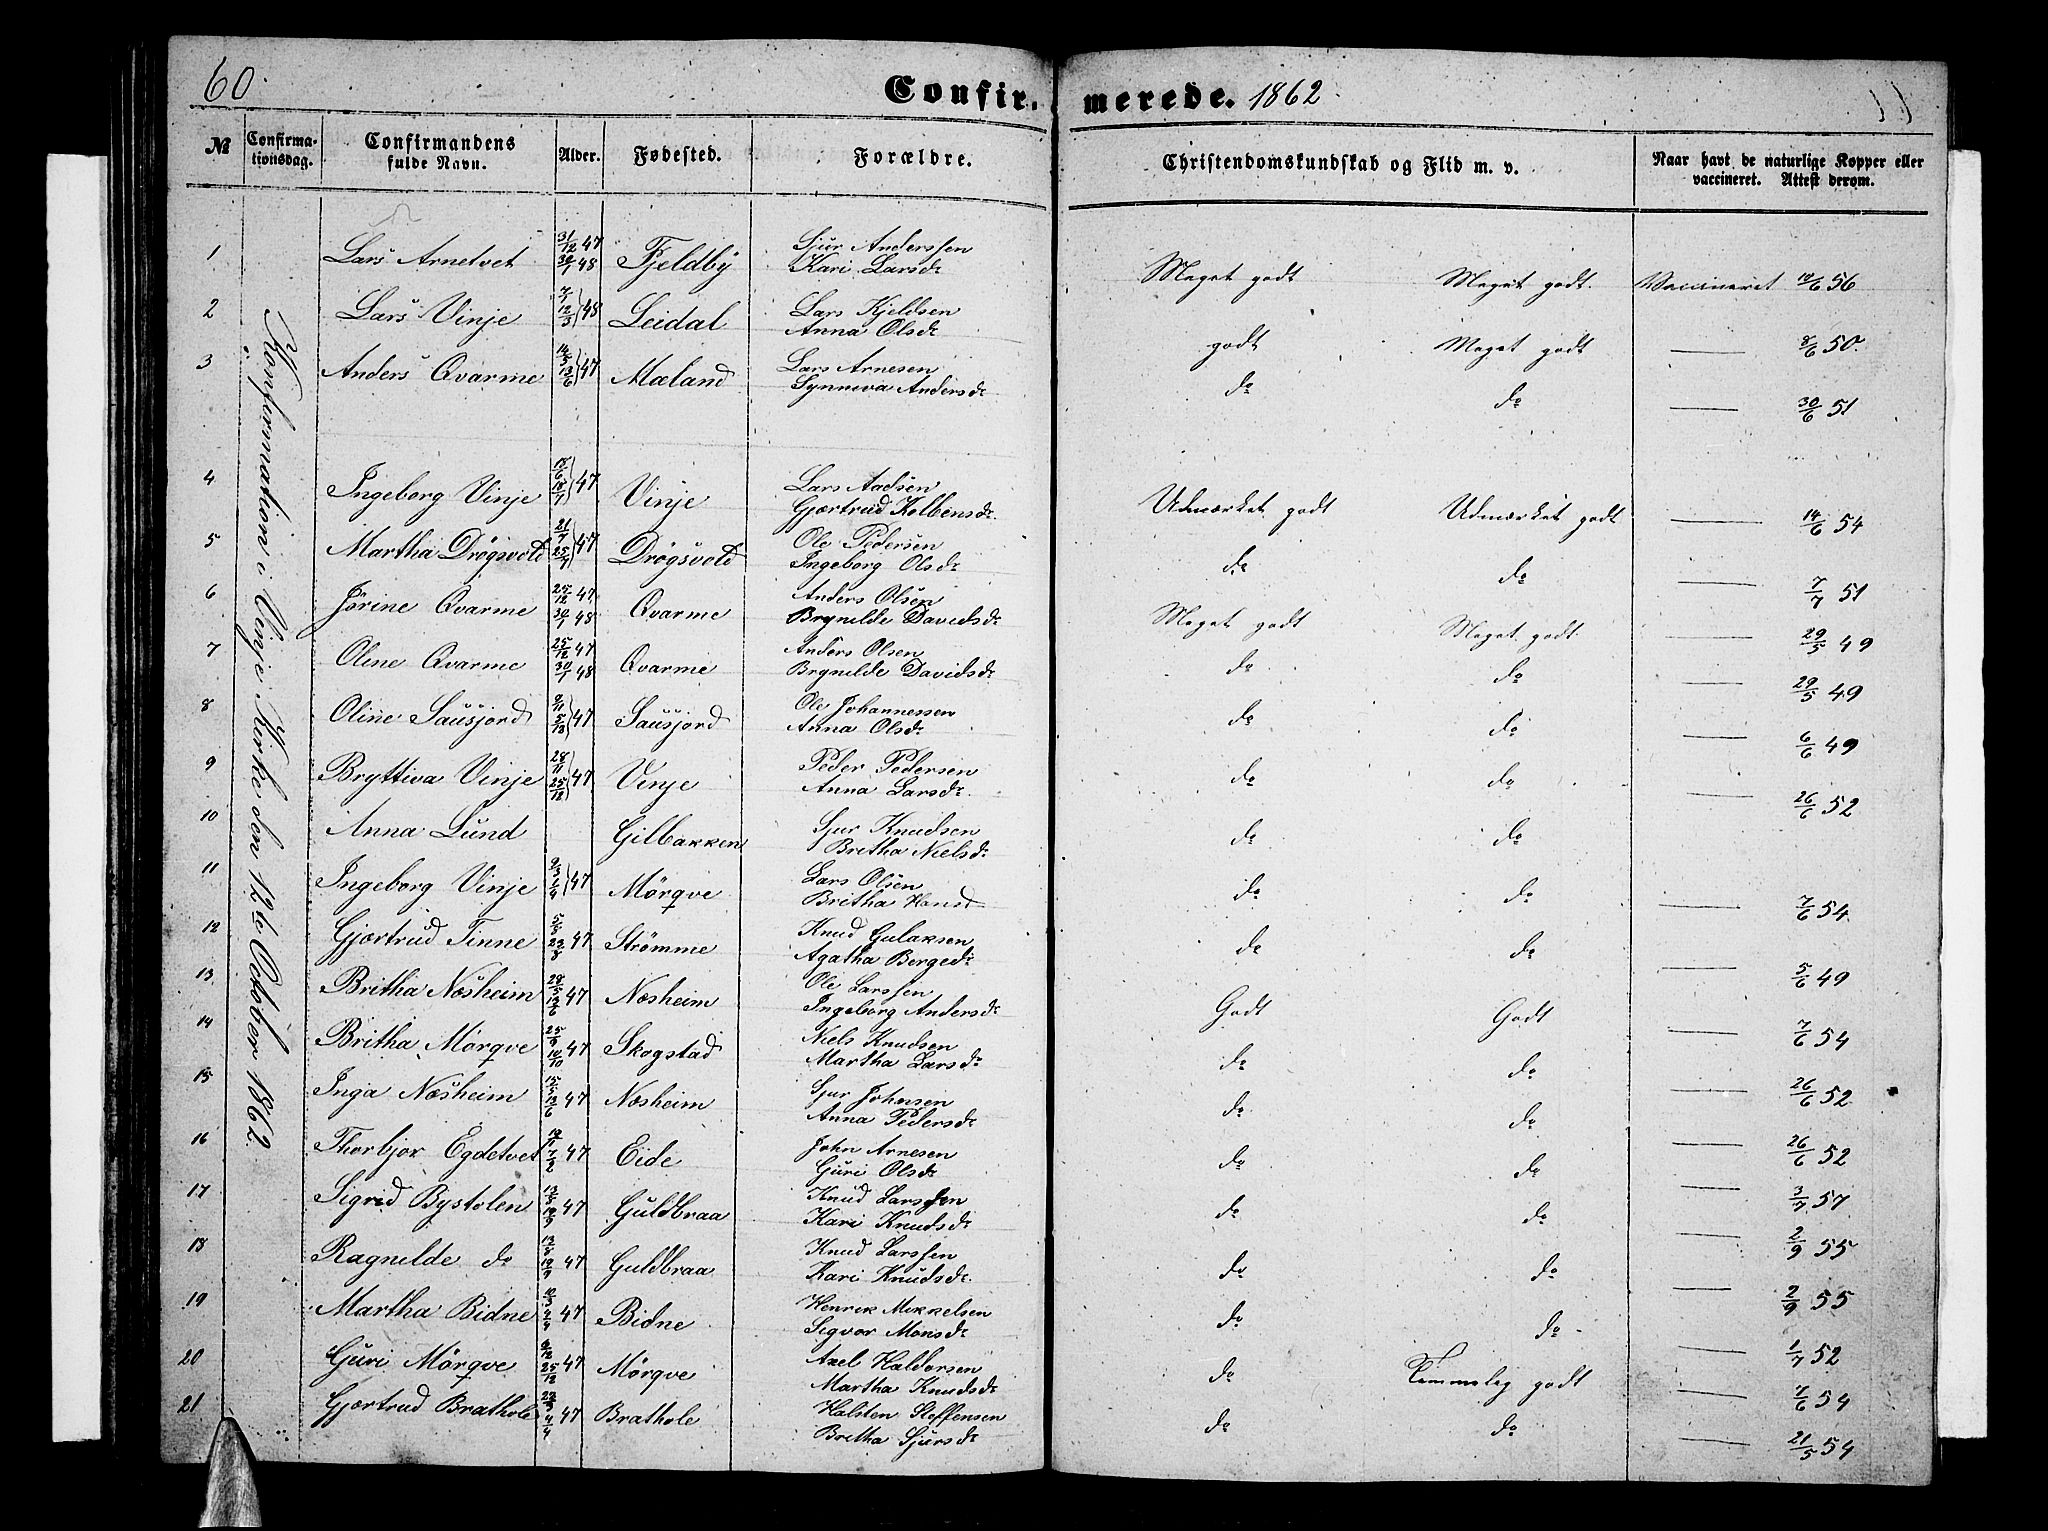 60
Confir- merede. 1862
№ Confirma-tionsdag. Confirmandens fulde Navn. Alder. Fødested. Forældre. Christendomskundskab og Flid m. v. Naar havt de naturlige Kopper eller vaccineret. Attest derom.
Konfirmation i Vinje Kirke den 12te October 1862.
1 Lars Arnetvet 31/12 47 30/1 48 Fjeldby Sjur Anderssen Kari Larsdr Meget godt Meget godt. Vaccineret 10/6 56
2 Lars Vinje 7/1 12/3 48 Leidal Lars Kjeldsen Anna Olsdr godt Meget godt — 8/6 50.
3 Anders Qvarme 14/5 13/6 47 Mæland Lars Arnesen Synneva Andersdr do do — 30/6 51
4 Ingeborg Vinje 47 Vinje Lars Aadsen Gjærtrud Kolbensdr. Udmærket godt Udmærket godt — 14/6 54
5 Martha Drøgsvold 21/7 25/7 47 Drøgsvold Ole Pedersen Ingeborg Olsdr do do — 7/7 51
6 Jørine Qvarme 25/12 47 30/1 48 Qvarme Anders Olsen Brynilde Davidsdr Meget godt Meget godt. — 29/5 49
7 Oline Qvarme 25/12 47 30/1 48 Qvarme Anders Olsen Brynilde Davidsdr do do — 29/5 49
8 Oline Sausjord 47 Sausjord Ole Johannessen Anna Olsdr do do — 6/6 49
9 Bryttiva Vinje 28/11 25/12 47 Vinje Peder Pedersen Anna Larsdr. do do — 26/6 52
10 Anna Lund Gilbakken Sjur Knudsen Britha Nielsdr do do
11 Ingeborg Vinje 47 Mörqve Lars Olsen Britha Hansd do do — 7/6 54
12 Gjærtrud Finne 47 Strömme Knud Gulaksen Agatha Bergedr do do — 5/6 49
13 Britha Næsheim 47 Næsheim Ole Larssen Ingeborg Andersdr Godt Godt — 7/6 54
14 Britha Mörqve 25/9 10/10 47 Skogstad Niels Knudsen Martha Larsdr do do — 26/6 52
15 Inga Næsheim 15/5 13/6 47 Næsheim Sjur Johnsen Anna Pedersdr do do — 26/6 52
16 Thorbjor Egdetvet 47 Eide John Arnesen Guri Olsdr do do — 3/7 57
17 Sigrid Bystølen 47 Guldbraa Knud Larssen Kari Knudsdr do do — 2/9 55
18 Ragnilde do 13/8 19/9 47 Guldbraa Knud Larssen Kari Knudsdr. do do — 2/9 55
19 Martha Bidne 47 Bidne Henrik Mikkelsen Sigvor Monsdr do do — 1/7 52
20 Guri Mörqve 47 Mörqve Axel Haldorsen Martha Knudsdr do Temmelig godt — 7/6 54
21 Gjærtrud Brathole 47 Brathole Halsten Steffensen Britha Sjursdr do do — 21/5 54